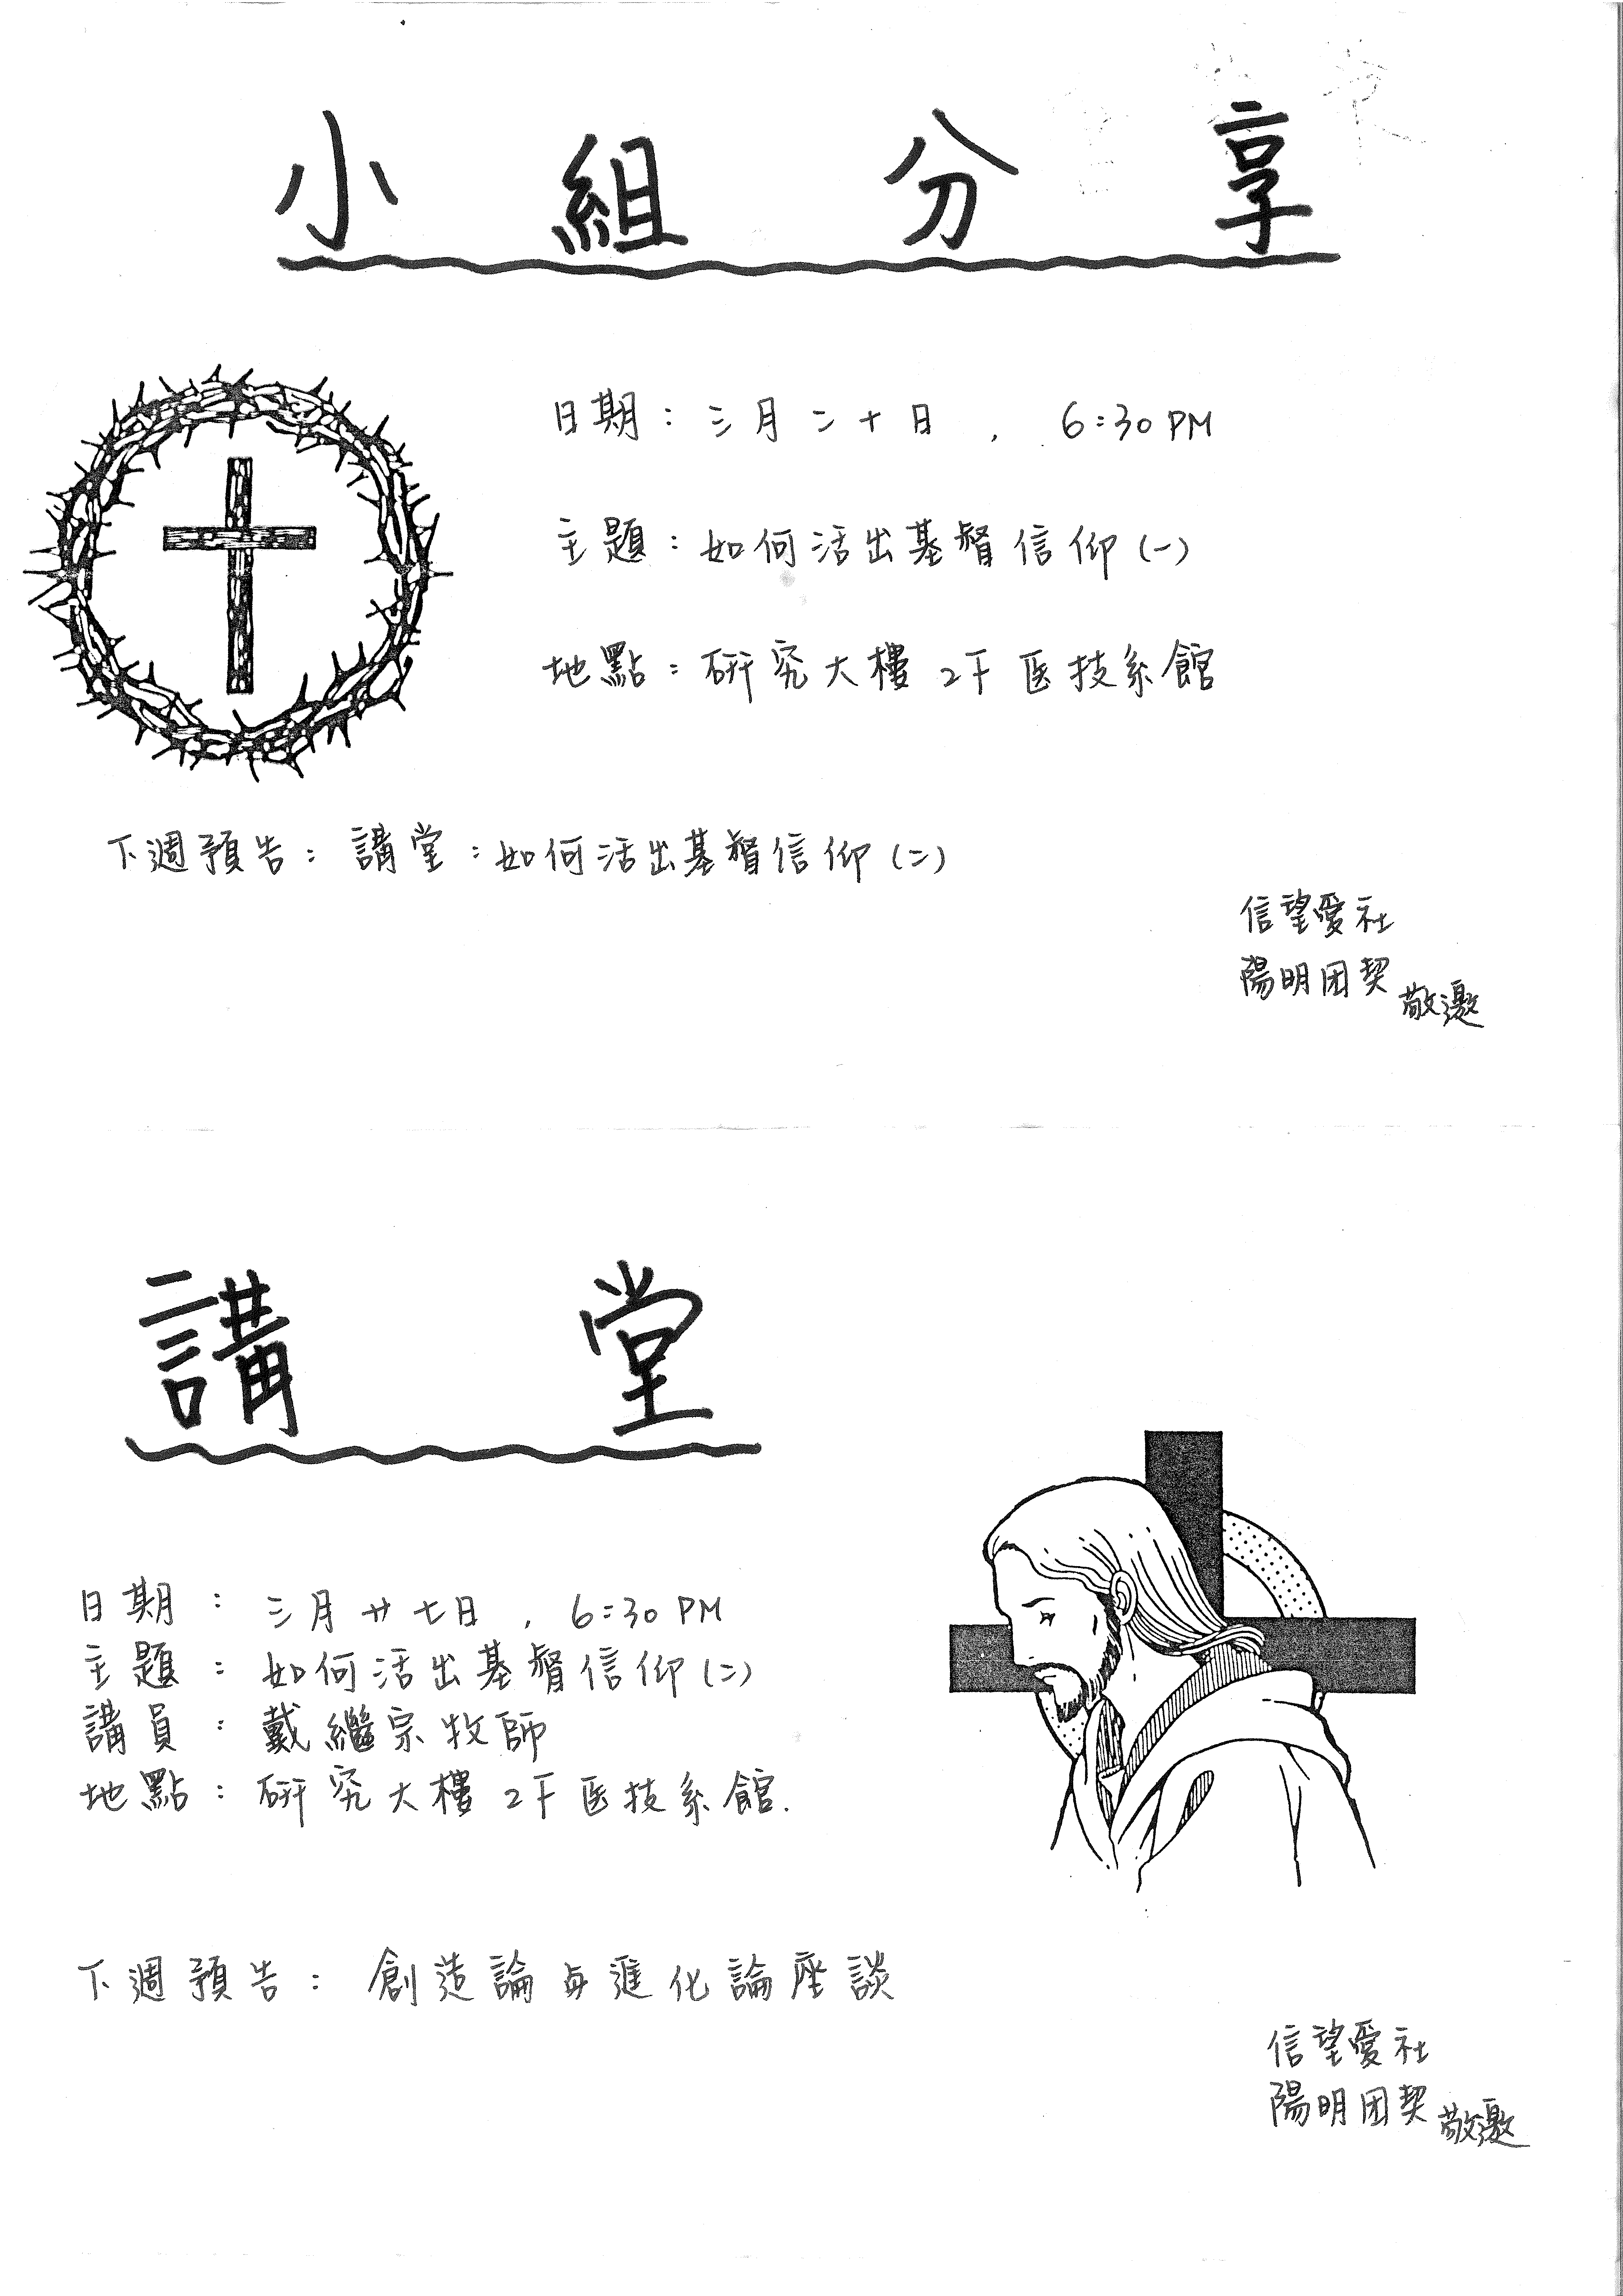 小組分享
日期：三月二十日，6:30 PM
主題：如何活出基督信仰(一)
地點：研究大樓 2F 医技系館
下週預告：講堂：如何活出基督信仰(二)
信望愛社
陽明团契 敬邀
講堂
日期：三月廿七日，6:30 PM
主題：如何活出基督信仰(二)
講員：戴繼宗牧師
地點：研究大樓 2F 医技系館.
下週預告：創造論与進化論座談
信望愛社
陽明团契 敬邀